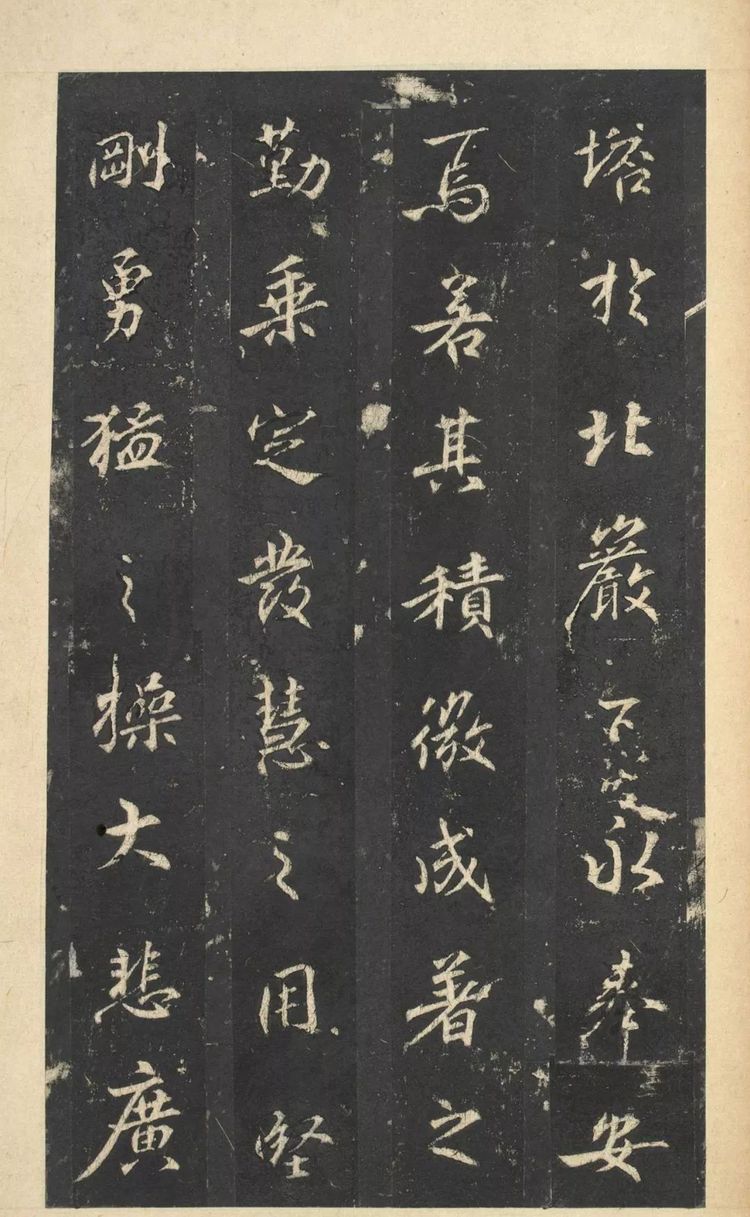 塔於北巖下永奉安
焉若其積微成著之
勤乘定發慧之用堅
剛勇猛之操大悲廣